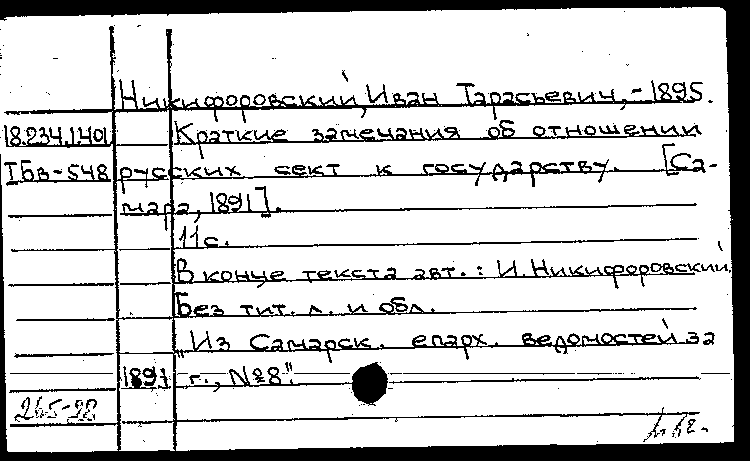 Никифоровский, Иван Тарасьевич, -1895.
18.234.1.401 Краткие замечания об отношении
I Бв-548 русских сект к государству. [Са-
мара, 1891].
11 с.
В конце текста авт.: И. Никифоровский
Без тит. л. и обл.
„Из Самарск. епарх. ведомостей за
1891 г., №8".
265-98